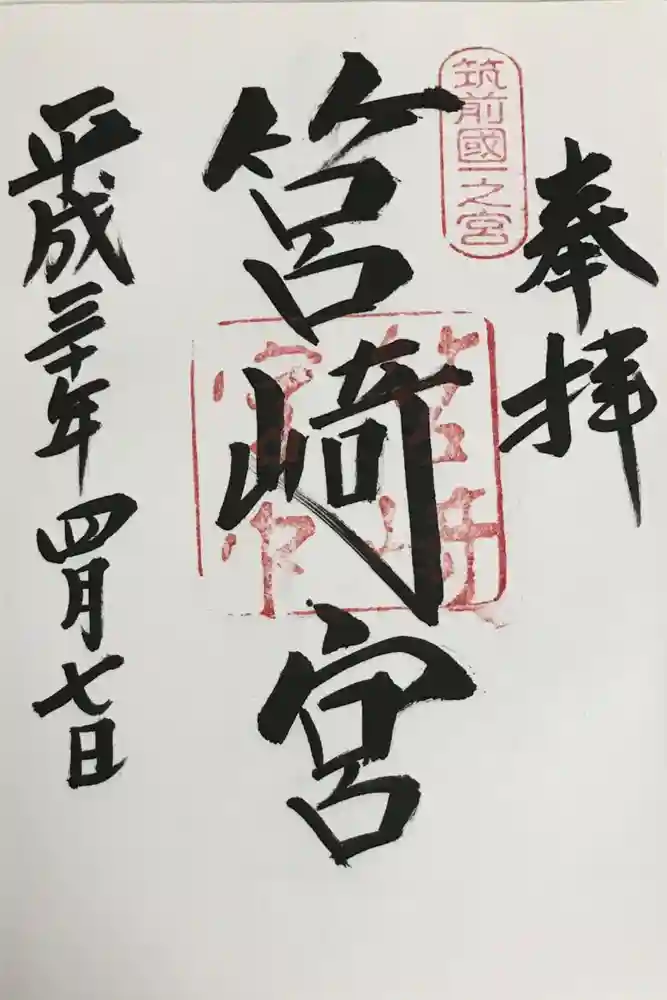 奉拝
筑前國一之宮
筥崎宮
平成三十年四月七日